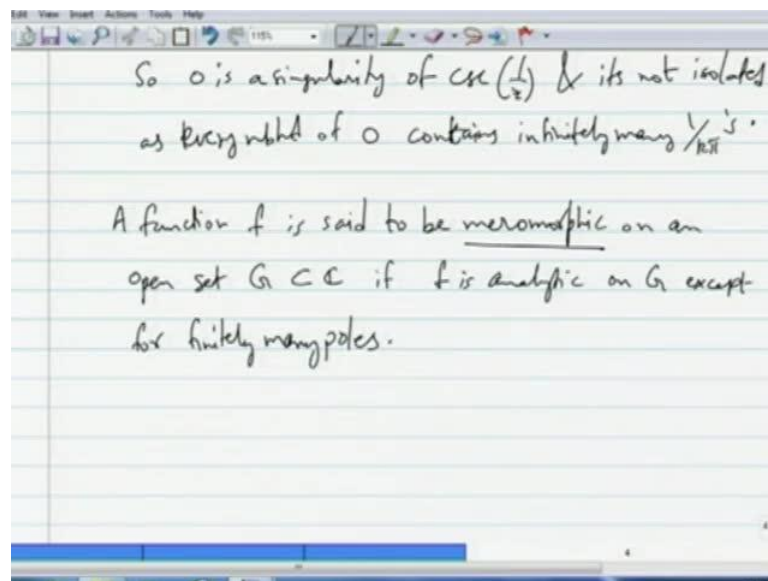 Edit View Insert Actions Tools Help
115%
So 0 is a singularity of csc(1/z) & its not isolated
as Every nbhd of 0 contains infinitely many 1/nπ's.
A function f is said to be meromorphic on an
open set G ⊂ ℂ if f is analytic on G except
for finitely many poles.
4